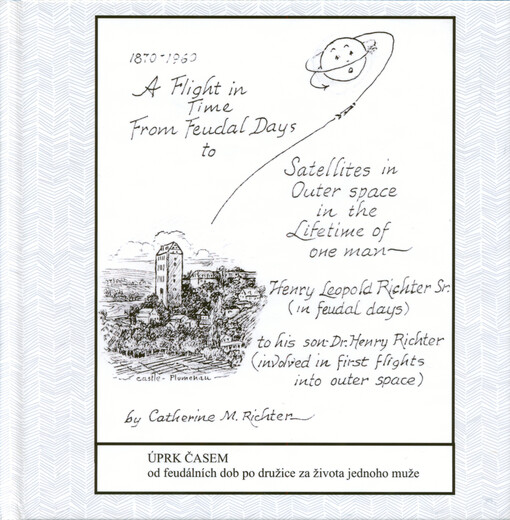 1870-1960
A Flight in
Time
From Feudal Days
to
Satellites in
Outer space
in the
Lifetime of
one man
Henry Leopold Richter Sr.
(in feudal days)
to his son Dr. Henry Richter
(involved in first flights
into outer space)
castle - Plumenau
by Catherine M. Richter
ÚPRK ČASEM
od feudálních dob po družice za života jednoho muže